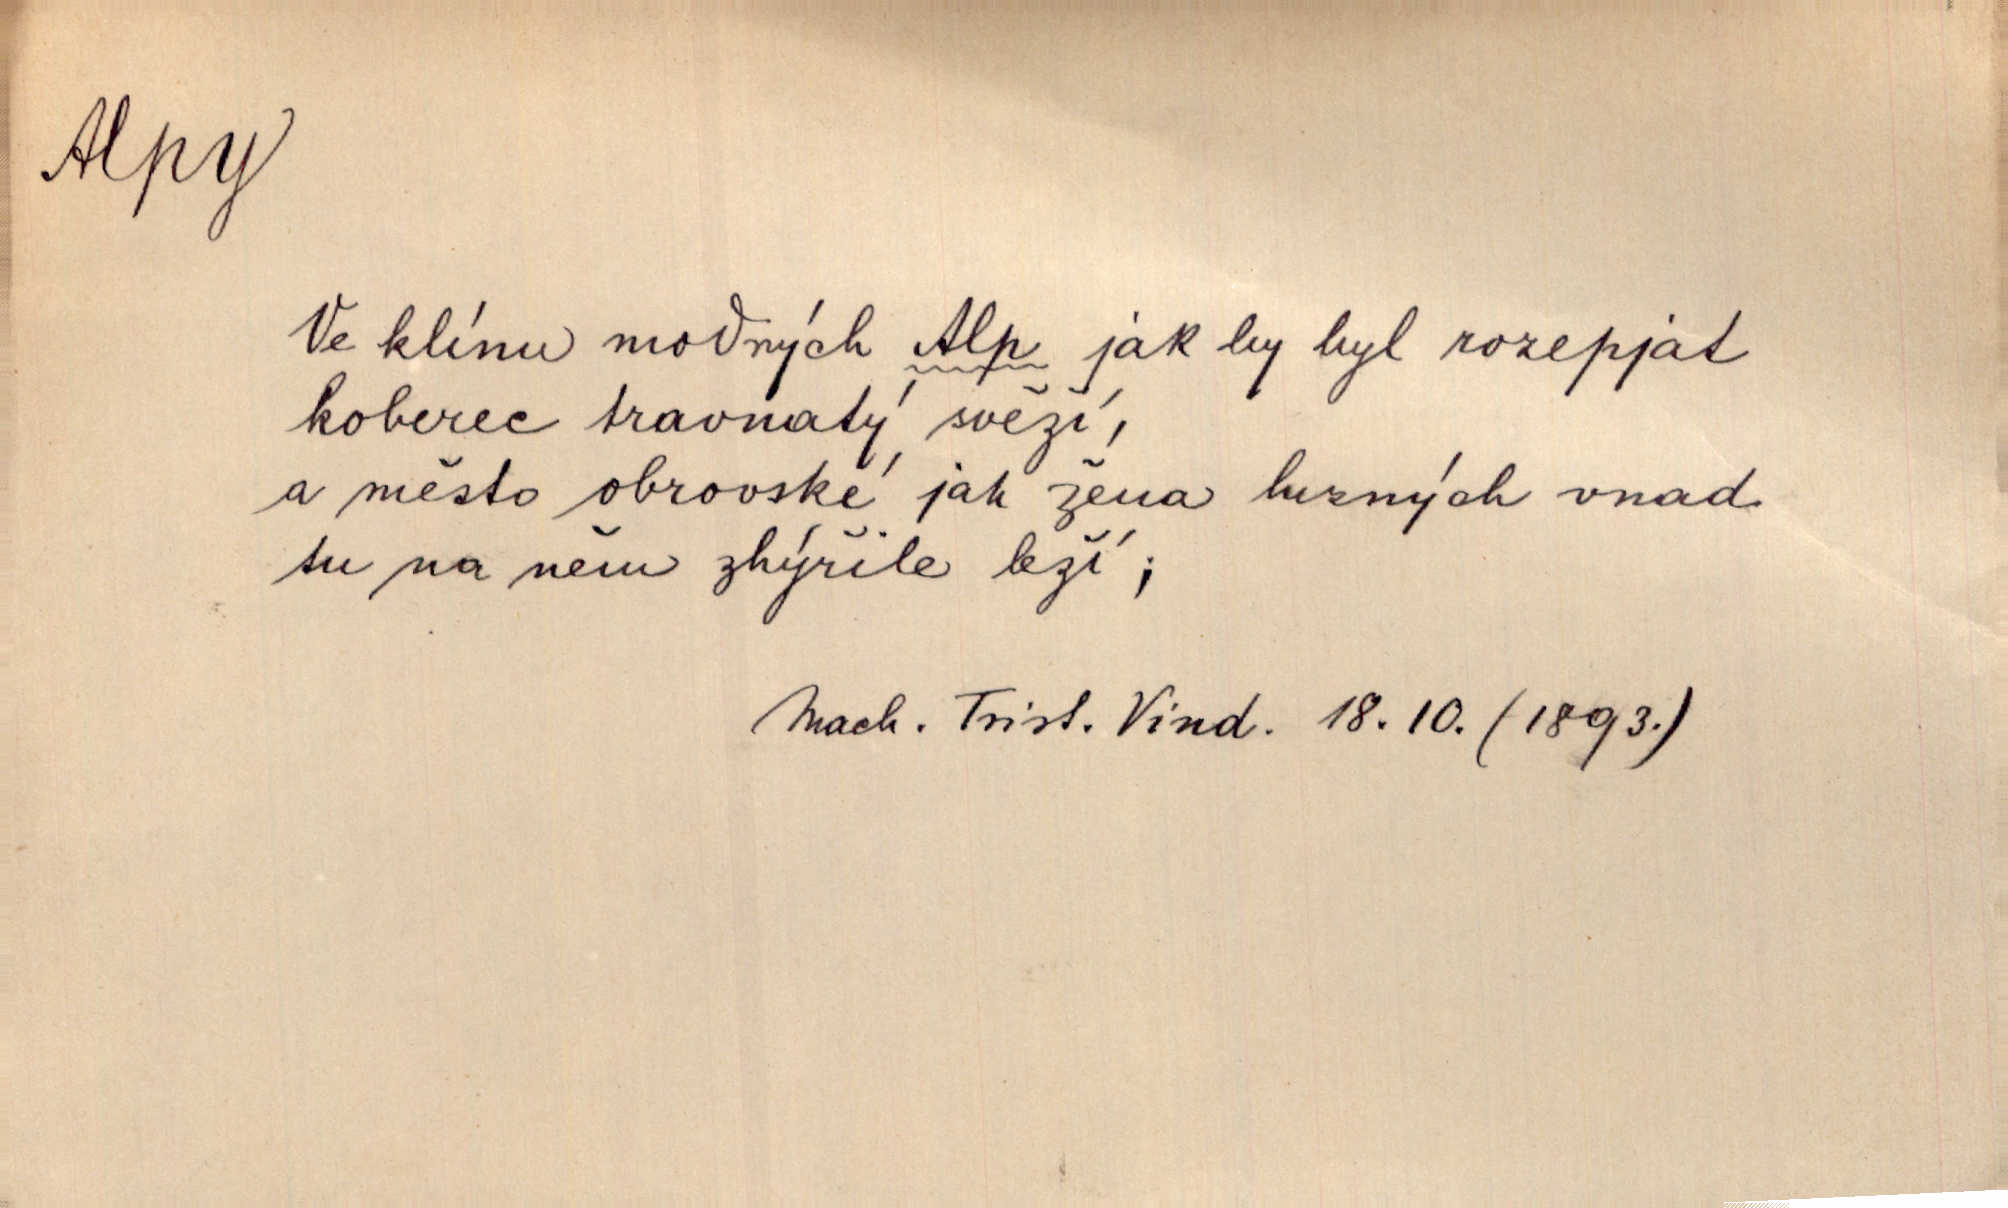 Alpy
Ve klínu modných Alp jak by byl rozepjat
koberec travnatý svěží,
a město obrovské jak žena hrzných vnad
tu na něm zhýřile leží;
Mach. Trist. Vind. 18. 10. (1893.)